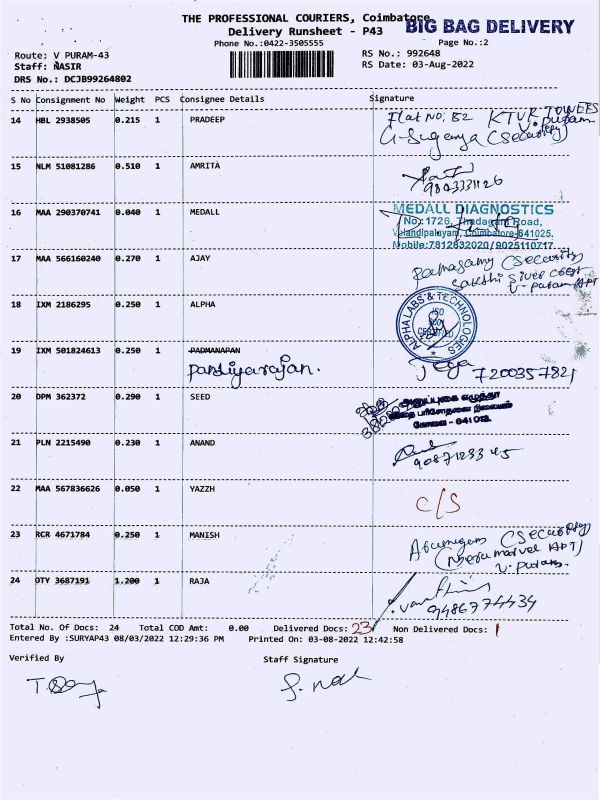 THE PROFESSIONAL COURIERS, Coimbatore
BIG BAG DELIVERY
Delivery Runsheet - P43
Phone No.:0422-3505555
Page No.:2
Route: V PURAM-43
RS No.: 992648
Staff: NASIR
RS Date: 03-Aug-2022
DRS No.: DCJB99264802
S No Consignment No Weight PCS Consignee Details Signature
14 HBL 2938505 0.215 1 PRADEEP
Flat No: B2 KTVR TOWERS
V. puram
G. Suganya (Security)
15 NLM 51081286 0.510 1 AMRITA
9843331126
16 MAA 290370741 0.040 1 MEDALL
MEDALL DIAGNOSTICS
No: 1726, Thadagam Road,
Velandipalayam, Coimbatore-641025,
Mobile:7812832020/9025110717
17 MAA 566160240 0.270 1 AJAY
Ramasamy (Security)
sakthi silver crest
V. puram APT
18 IXM 2186295 0.250 1 ALPHA
ALPHA LABS & TECHNOLOGIES
ISO
19 IXM 501824613 0.250 1 PADMANAPAN
pandiyarajan.
Jega 7200357821
20 DPM 362372 0.290 1 SEED
கோவை - 641 013.
21 PLN 2215490 0.230 1 ANAND
9087123345
22 MAA 567836626 0.050 1 YAZZH
C/S
23 RCR 4671784 0.250 1 MANISH
Arumugam (Security)
V. puram.
24 OTY 3687191 1.200 1 RAJA
9486774434
Total No. Of Docs: 24 Total COD Amt: 0.00 Delivered Docs: 23 Non Delivered Docs: 1
Entered By :SURYAP43 08/03/2022 12:29:36 PM Printed On: 03-08-2022 12:42:58
Verified By Staff Signature